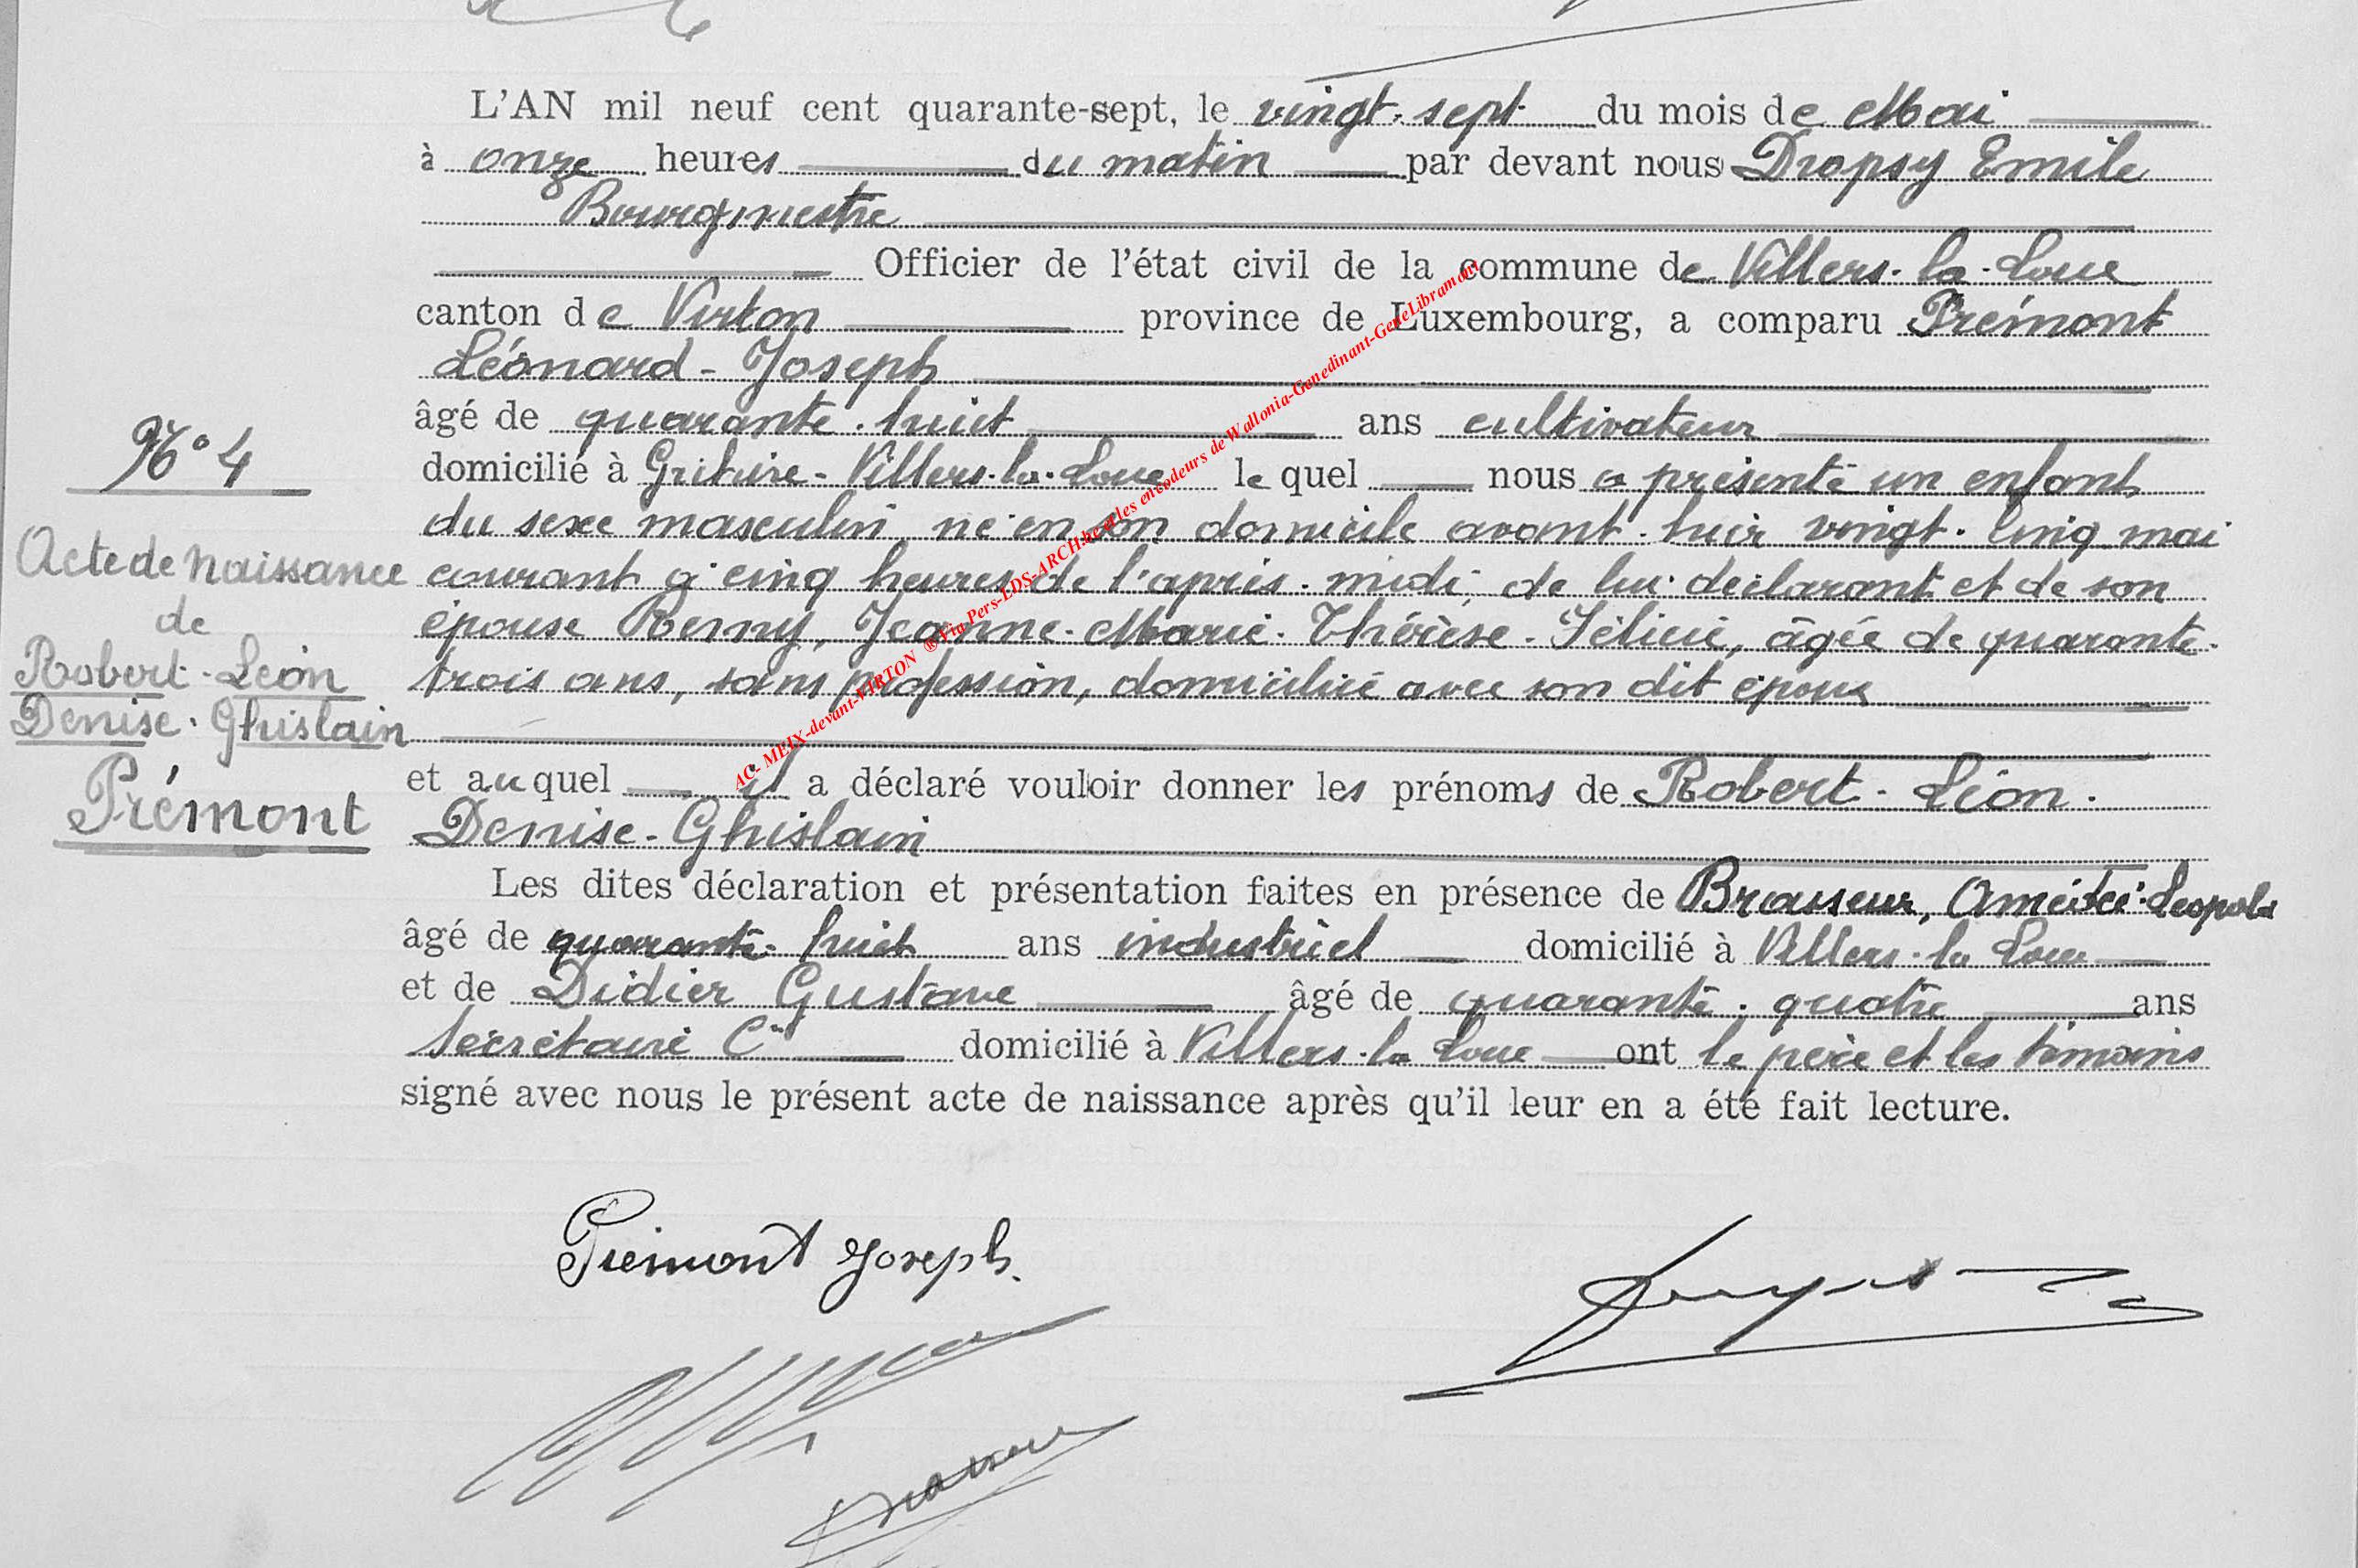 L'AN mil neuf cent quarante-sept, le vingt-sept du mois de Mai
à onze heures du matin par devant nous Dropsy Emile
Bourgmestre
Officier de l'état civil de la commune de Villers-la-Loue
canton de Virton province de Luxembourg, a comparu Prémont
Léonard-Joseph
âgé de quarante-huit ans cultivateur
domicilié à Villers-la-Loue lequel nous a présenté un enfant
du sexe masculin né en son domicile avant-hier vingt-cinq mai
courant à cinq heures de l'après-midi, de lui déclarant et de son
épouse Remy, Jeanne-Marie-Thérèse-Félicie, âgée de quarante-
trois ans, sans profession, domiciliée avec son dit époux
et auquel il a déclaré vouloir donner les prénoms de Robert-Léon-
Denise-Ghislain
Les dites déclaration et présentation faites en présence de Brasseur, Amédée-Léopold
âgé de quarante-huit ans industriel domicilié à Villers-la-Loue
et de Didier Gustave âgé de quarante-quatre ans
Secrétaire Cal domicilié à Villers-la-Loue ont le père et les témoins
signé avec nous le présent acte de naissance après qu'il leur en a été fait lecture.
N° 4
Acte de Naissance
de
Robert-Léon
Denise-Ghislain
Prémont
AC- MEIX-devant-VIRTON ® Via Pers-LDS-ARCH.be et les encodeurs de Wallonia-Genedinant-GeneLibramont
Prémont Joseph.
Brasseur